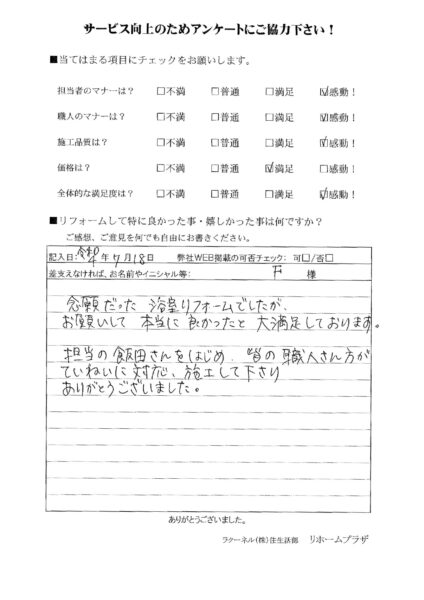 サービス向上のためアンケートにご協力下さい！
■当てはまる項目にチェックをお願いします。
担当者のマナーは？ □不満 □普通 □満足 ☑感動！
職人のマナーは？ □不満 □普通 □満足 ☑感動！
施工品質は？ □不満 □普通 □満足 ☑感動！
価格は？ □不満 □普通 ☑満足 □感動！
全体的な満足度は？ □不満 □普通 □満足 ☑感動！
■リフォームして特に良かった事・嬉しかった事は何ですか？
ご感想、ご意見を何でも自由にお書きください。
記入日：令和4年7月18日 弊社WEB掲載の可否チェック：可□/否□
差支えなければ、お名前やイニシャル等： F 様
念願だった 浴室リフォームでしたが、
お願いして 本当に良かったと 大満足しております。
担当の飯田さんをはじめ、皆の職人さん方が
ていねいに対応、施工して下さり
ありがとうございました。
ありがとうございました。
ラクーネル(株)住生活部 リホームプラザ